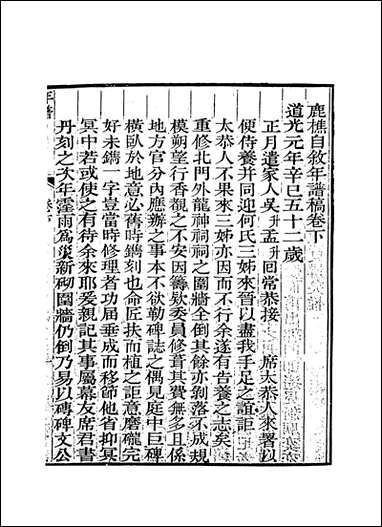 鹿樵自敘年譜稿卷下
道光元年辛巳五十二歲
正月遣家人吳升孟升回常恭接 席太恭人來署以
便侍養并同迎何氏三姊來晉以盡我手足之誼詎
太恭人不果來三姊亦因而不行余遂有告養之志矣
重修北門外龍神祠祠之圍牆全倒其餘亦剝落不成規
模朔望行香觀之不安因籌欵委員修葺其費無多且係
地方官分內應辦之事本不欲勒碑誌之偶見庭中巨碑
橫臥於地意必舊時鐫刻也命匠扶而植之詎意磨礲完
好未鐫一字豈當時修理者功屆垂成而移節他省抑冥
冥中若或使之有待余來耶爰親記其事屬幕友席君書
丹刻之次年霪雨為災新砌圍牆仍倒乃易以磚碑文公